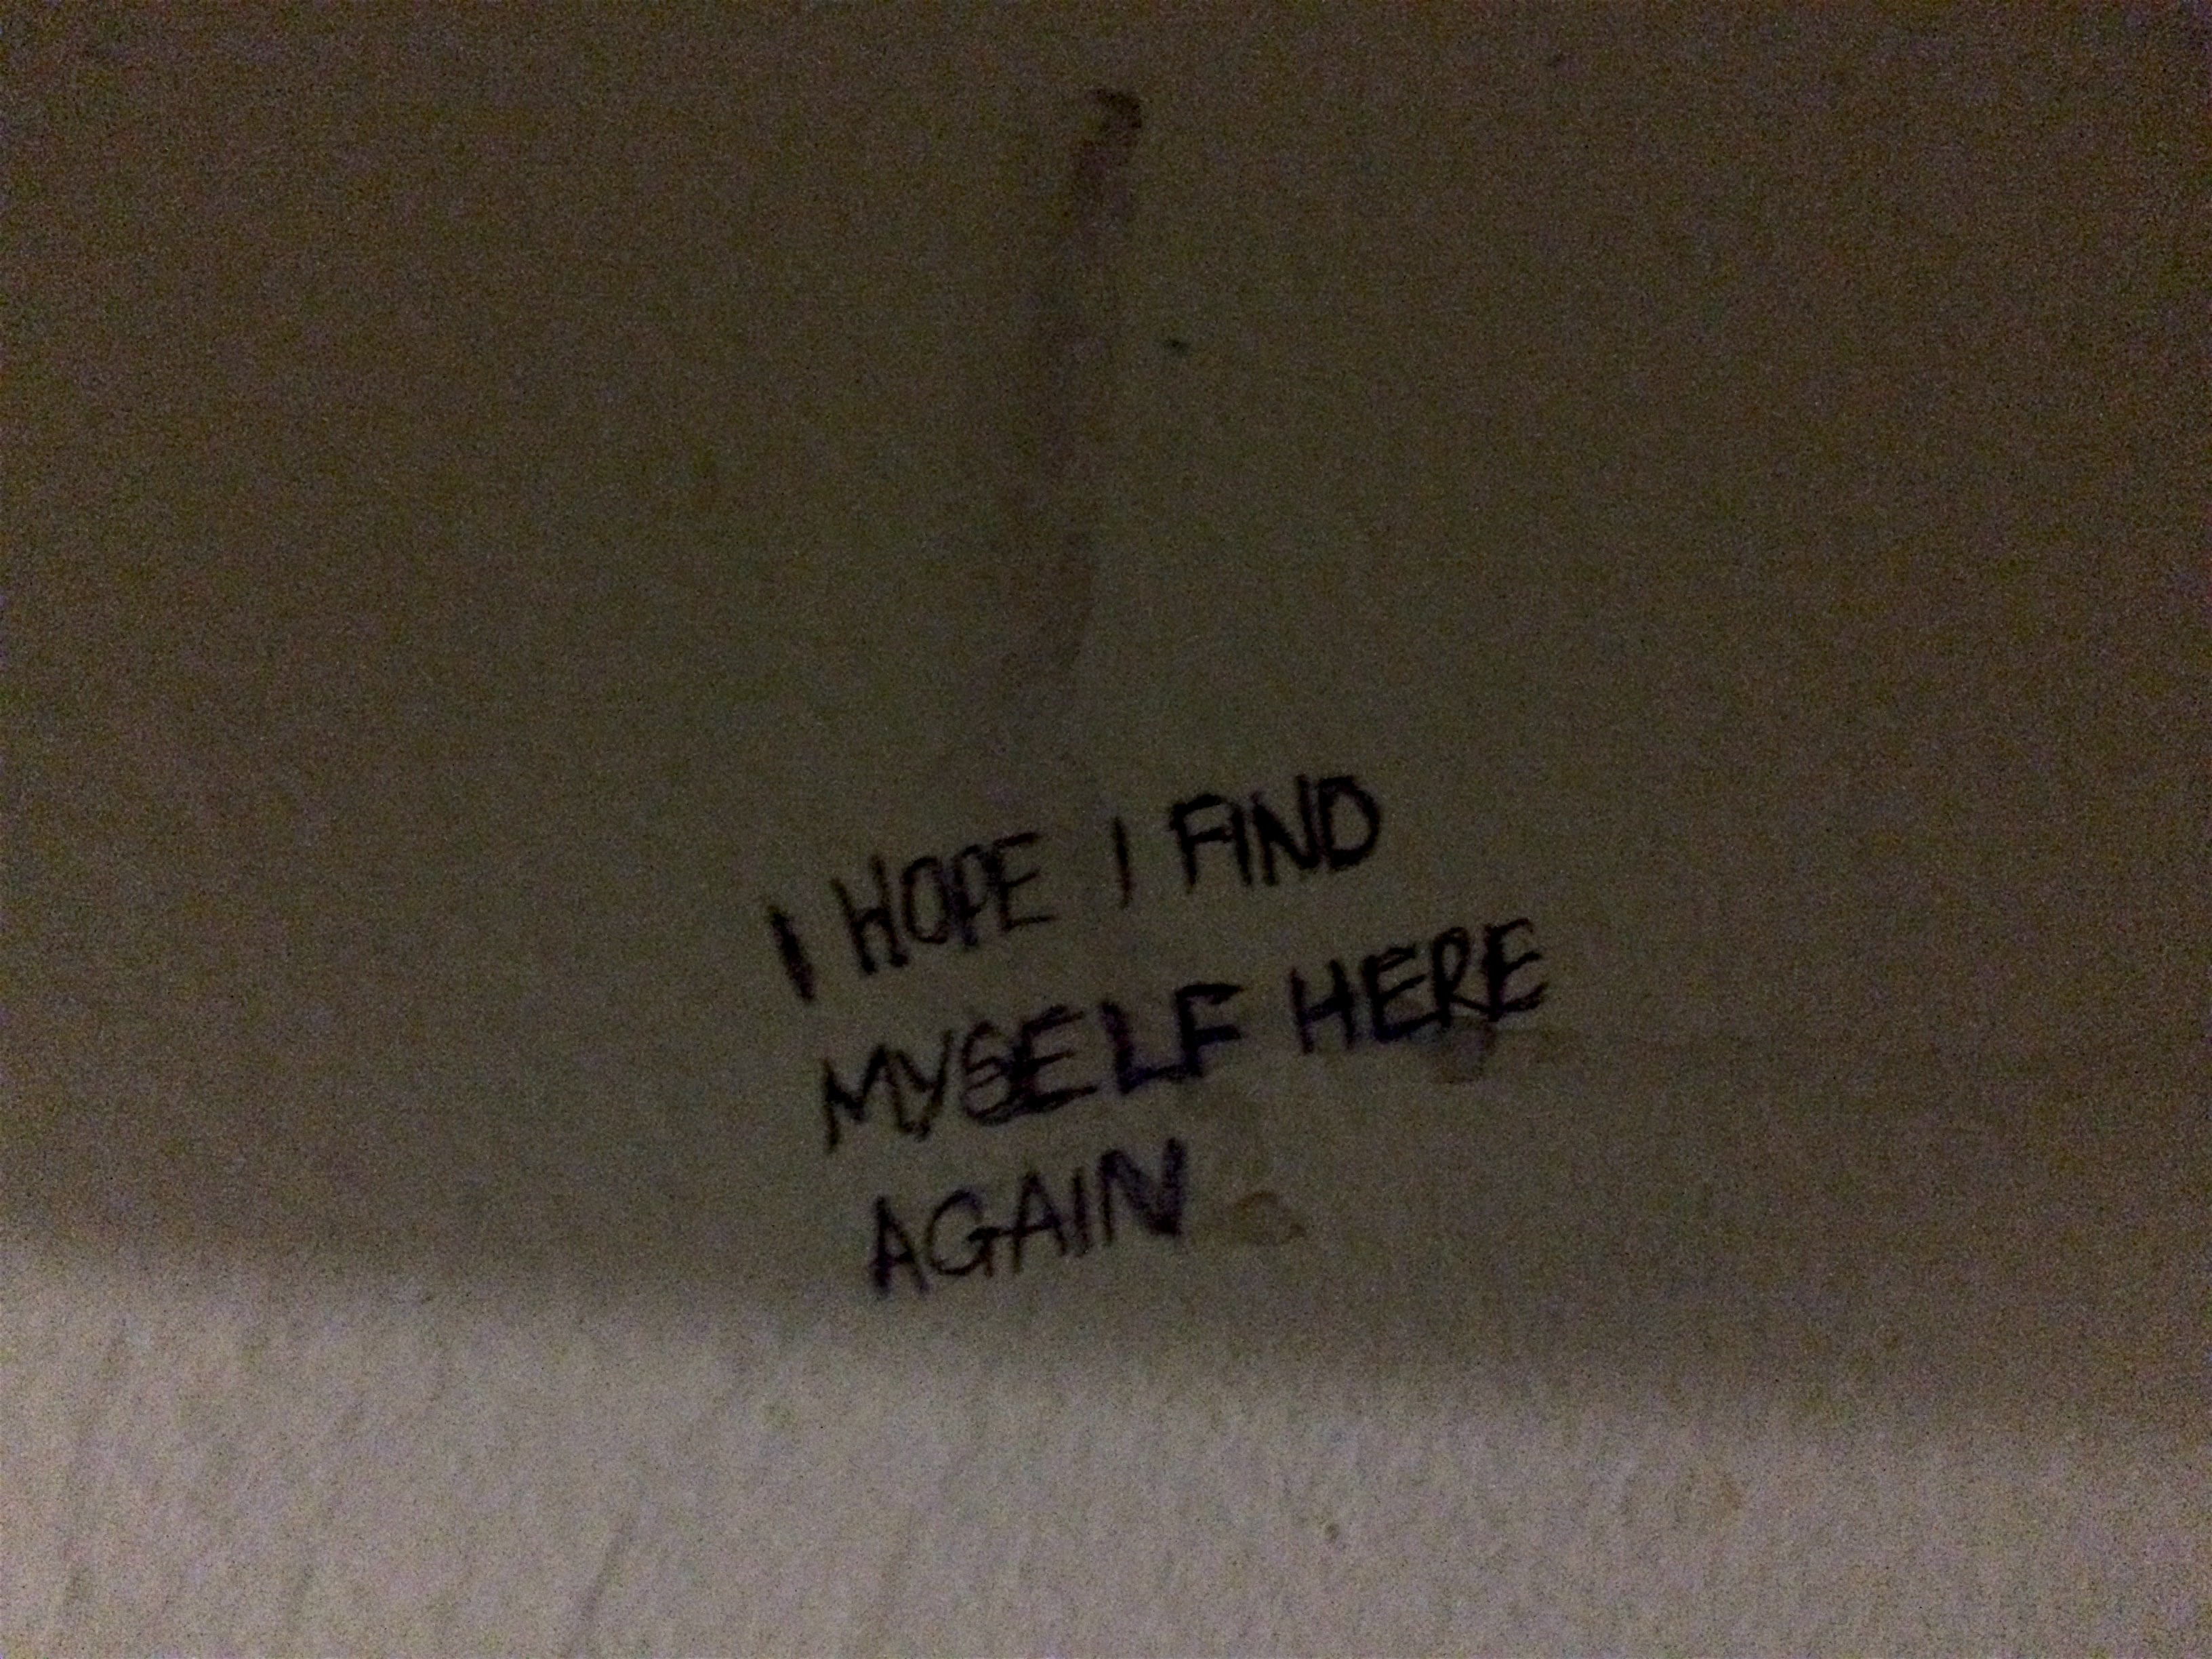 I HOPE I FIND
MYSELF HERE
AGAIN